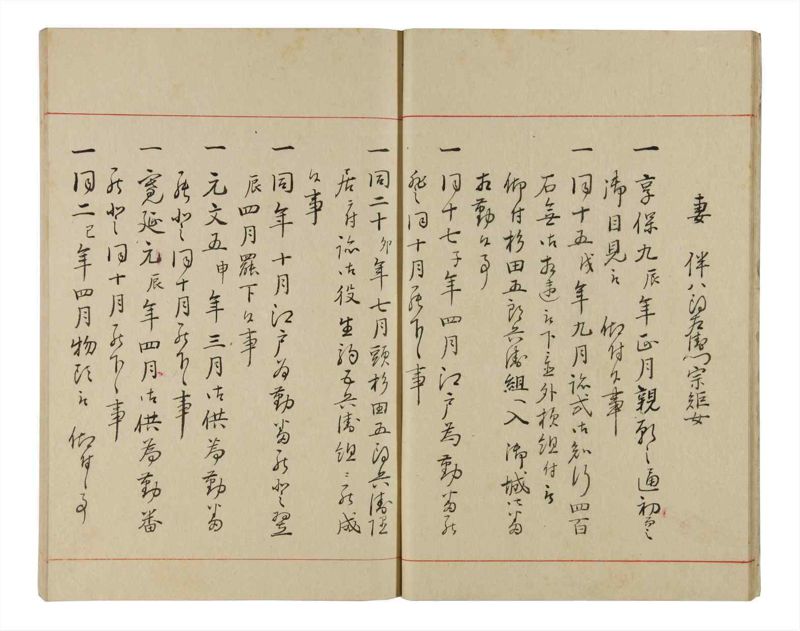 妻 伴八郎左衛門宗矩女
一 享保九辰年正月親願之通初而
御目見被 仰付候事
一 同十五戌年九月跡式御知行四百
石無御相違被下置外様組付被
仰付杉田五郎兵衛組へ入 御城御番
相勤候事
一 同十七子年四月江戸為勤番罷
登同十月罷下候事
一 同二十卯年七月頭杉田五郎兵衛
居 跡御役生駒五兵衛組ニ罷成
候事
一 同年十月江戸為勤番罷登翌
辰四月罷下候事
一 元文五申年三月御供為勤番
罷登同十月罷下候事
一 寛延元辰年四月御供為勤番
罷登同十月罷下候事
一 同二巳年四月物頭被 仰付候事